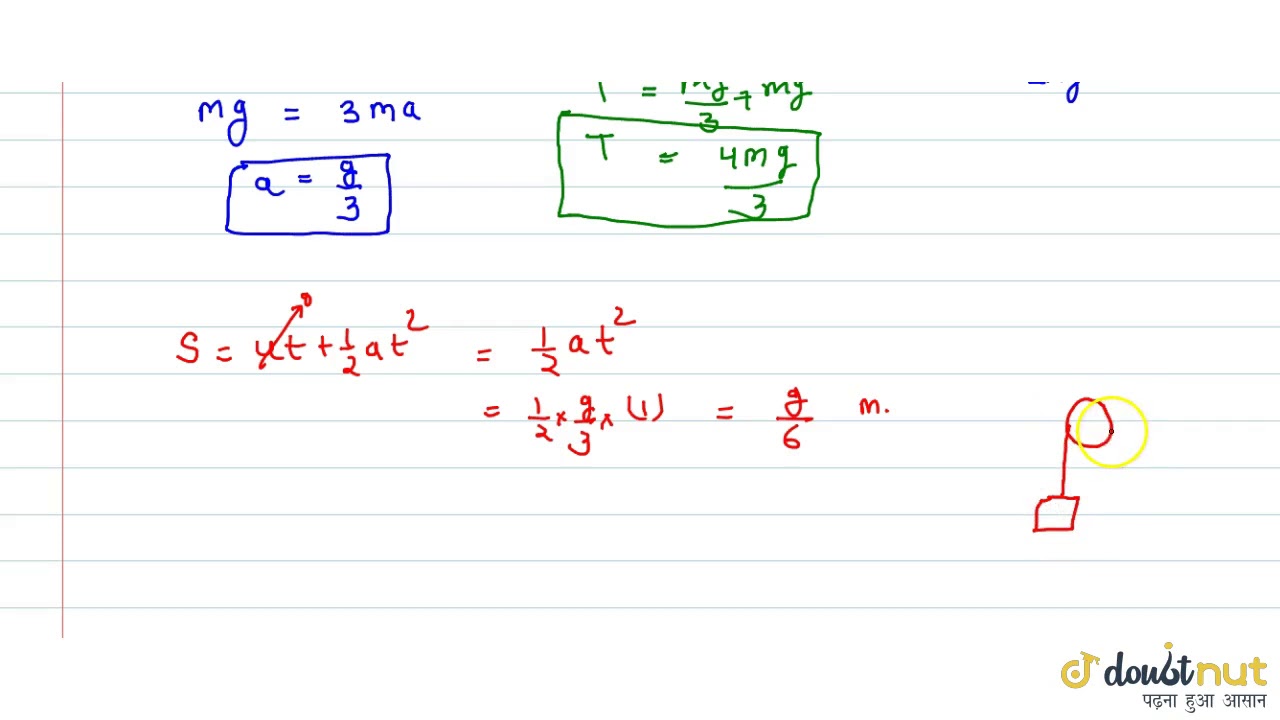 T = mg/3 + mg
mg = 3ma
T = 4mg/3
a = g/3
S = ut + 1/2 at² = 1/2 at²
0
= 1/2 × g/3 × (1) = g/6 m.
doubtnut
पढ़ना हुआ आसान